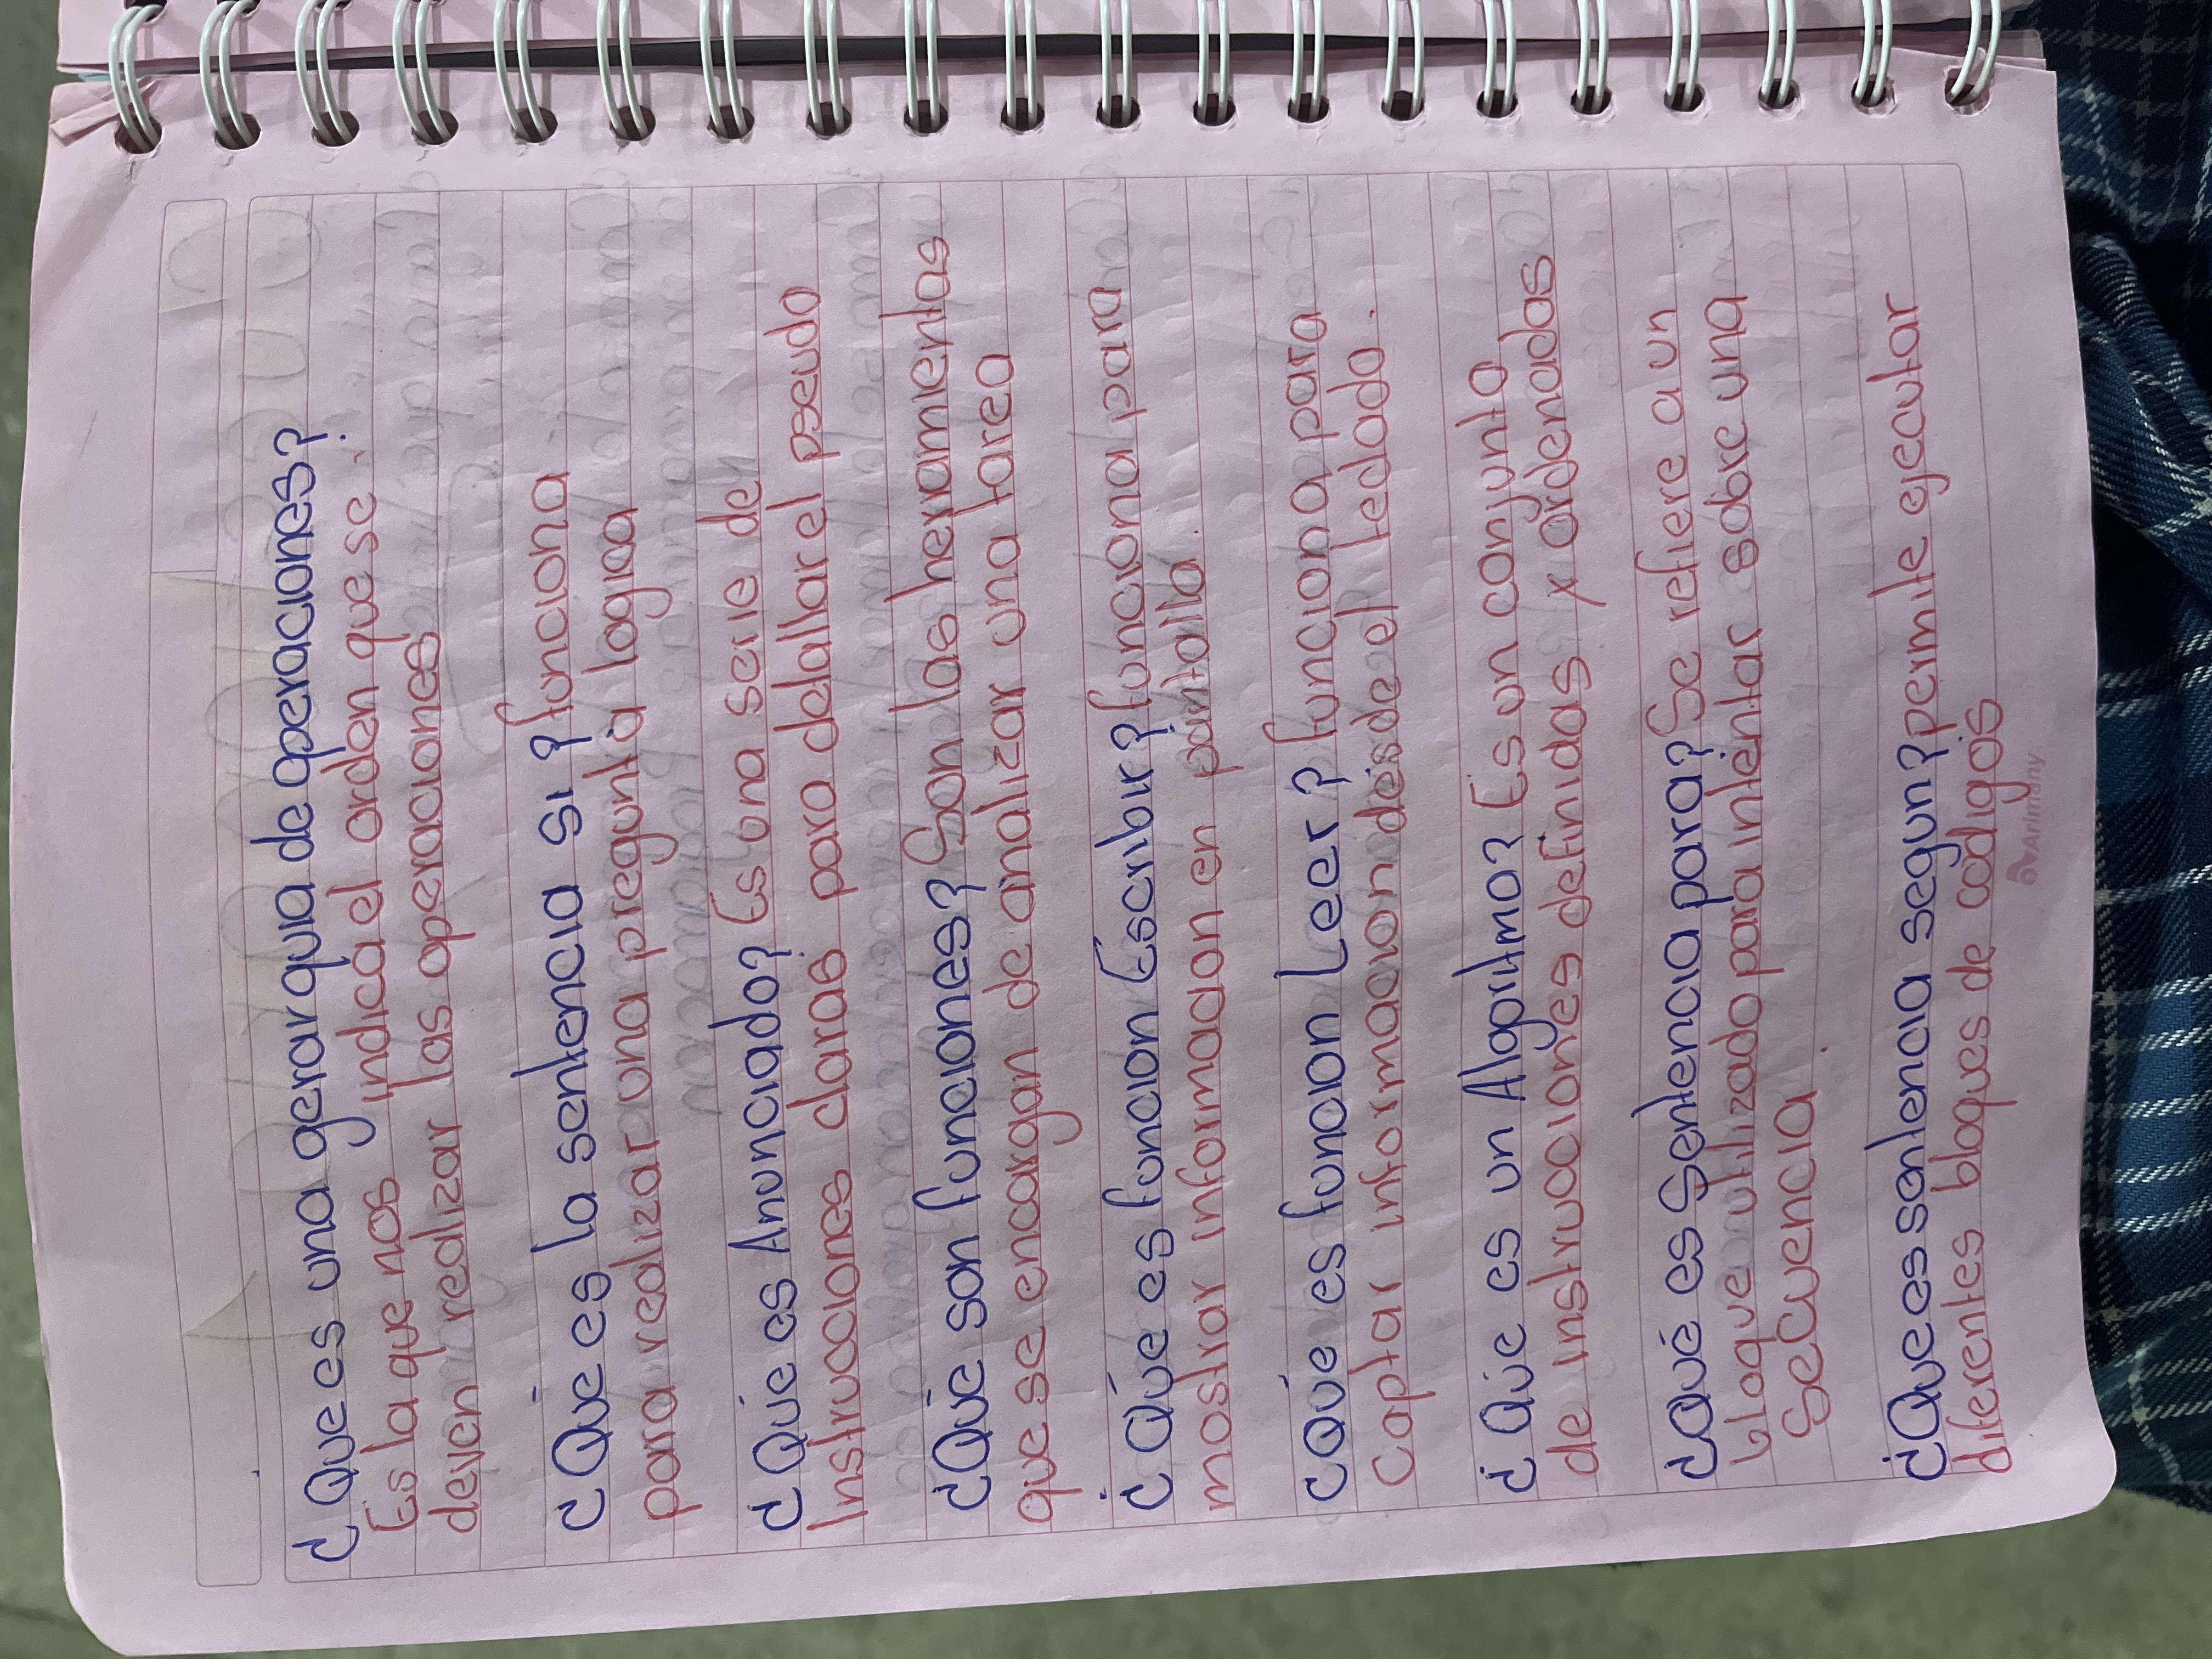 ¿Que es una gerarquia de operaciones?
Es la que nos indica el orden que se
deven realizar las operaciones
¿Qué es la sentencia si? funciona
para realizar una pregunta logica
¿Qué es Anunciado? Es una serie de
Instrucciones claras para detallar el pseudo
¿Qué son funciones? Son las herramientas
que se encargan de analizar una tarea
¿Qúe es funcion Escribir? funciona para
mostrar informacion en pantalla.
¿Qué es funcion Leer? funciona para
Captar informacion desde el teclado.
¿Qúe es un Algoritmo? Es un conjunto
de instrucciones definidas y ordenadas
¿Qué es Sentencia para? Se refiere a un
bloque utilizado para intentar sobre una
Secuencia.
¿Que es sentencia segun? permite ejecutar
diferentes bloques de codigos
Arimany